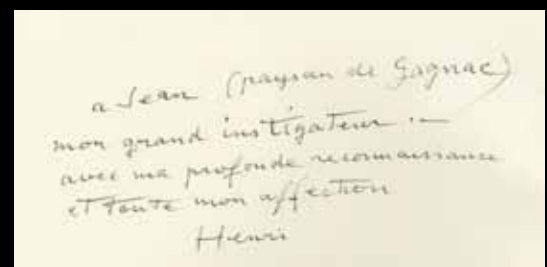 a Jean (paysan de Gagnac)
mon grand instigateur . –
avec ma profonde reconnaissance
et toute mon affection
Henri